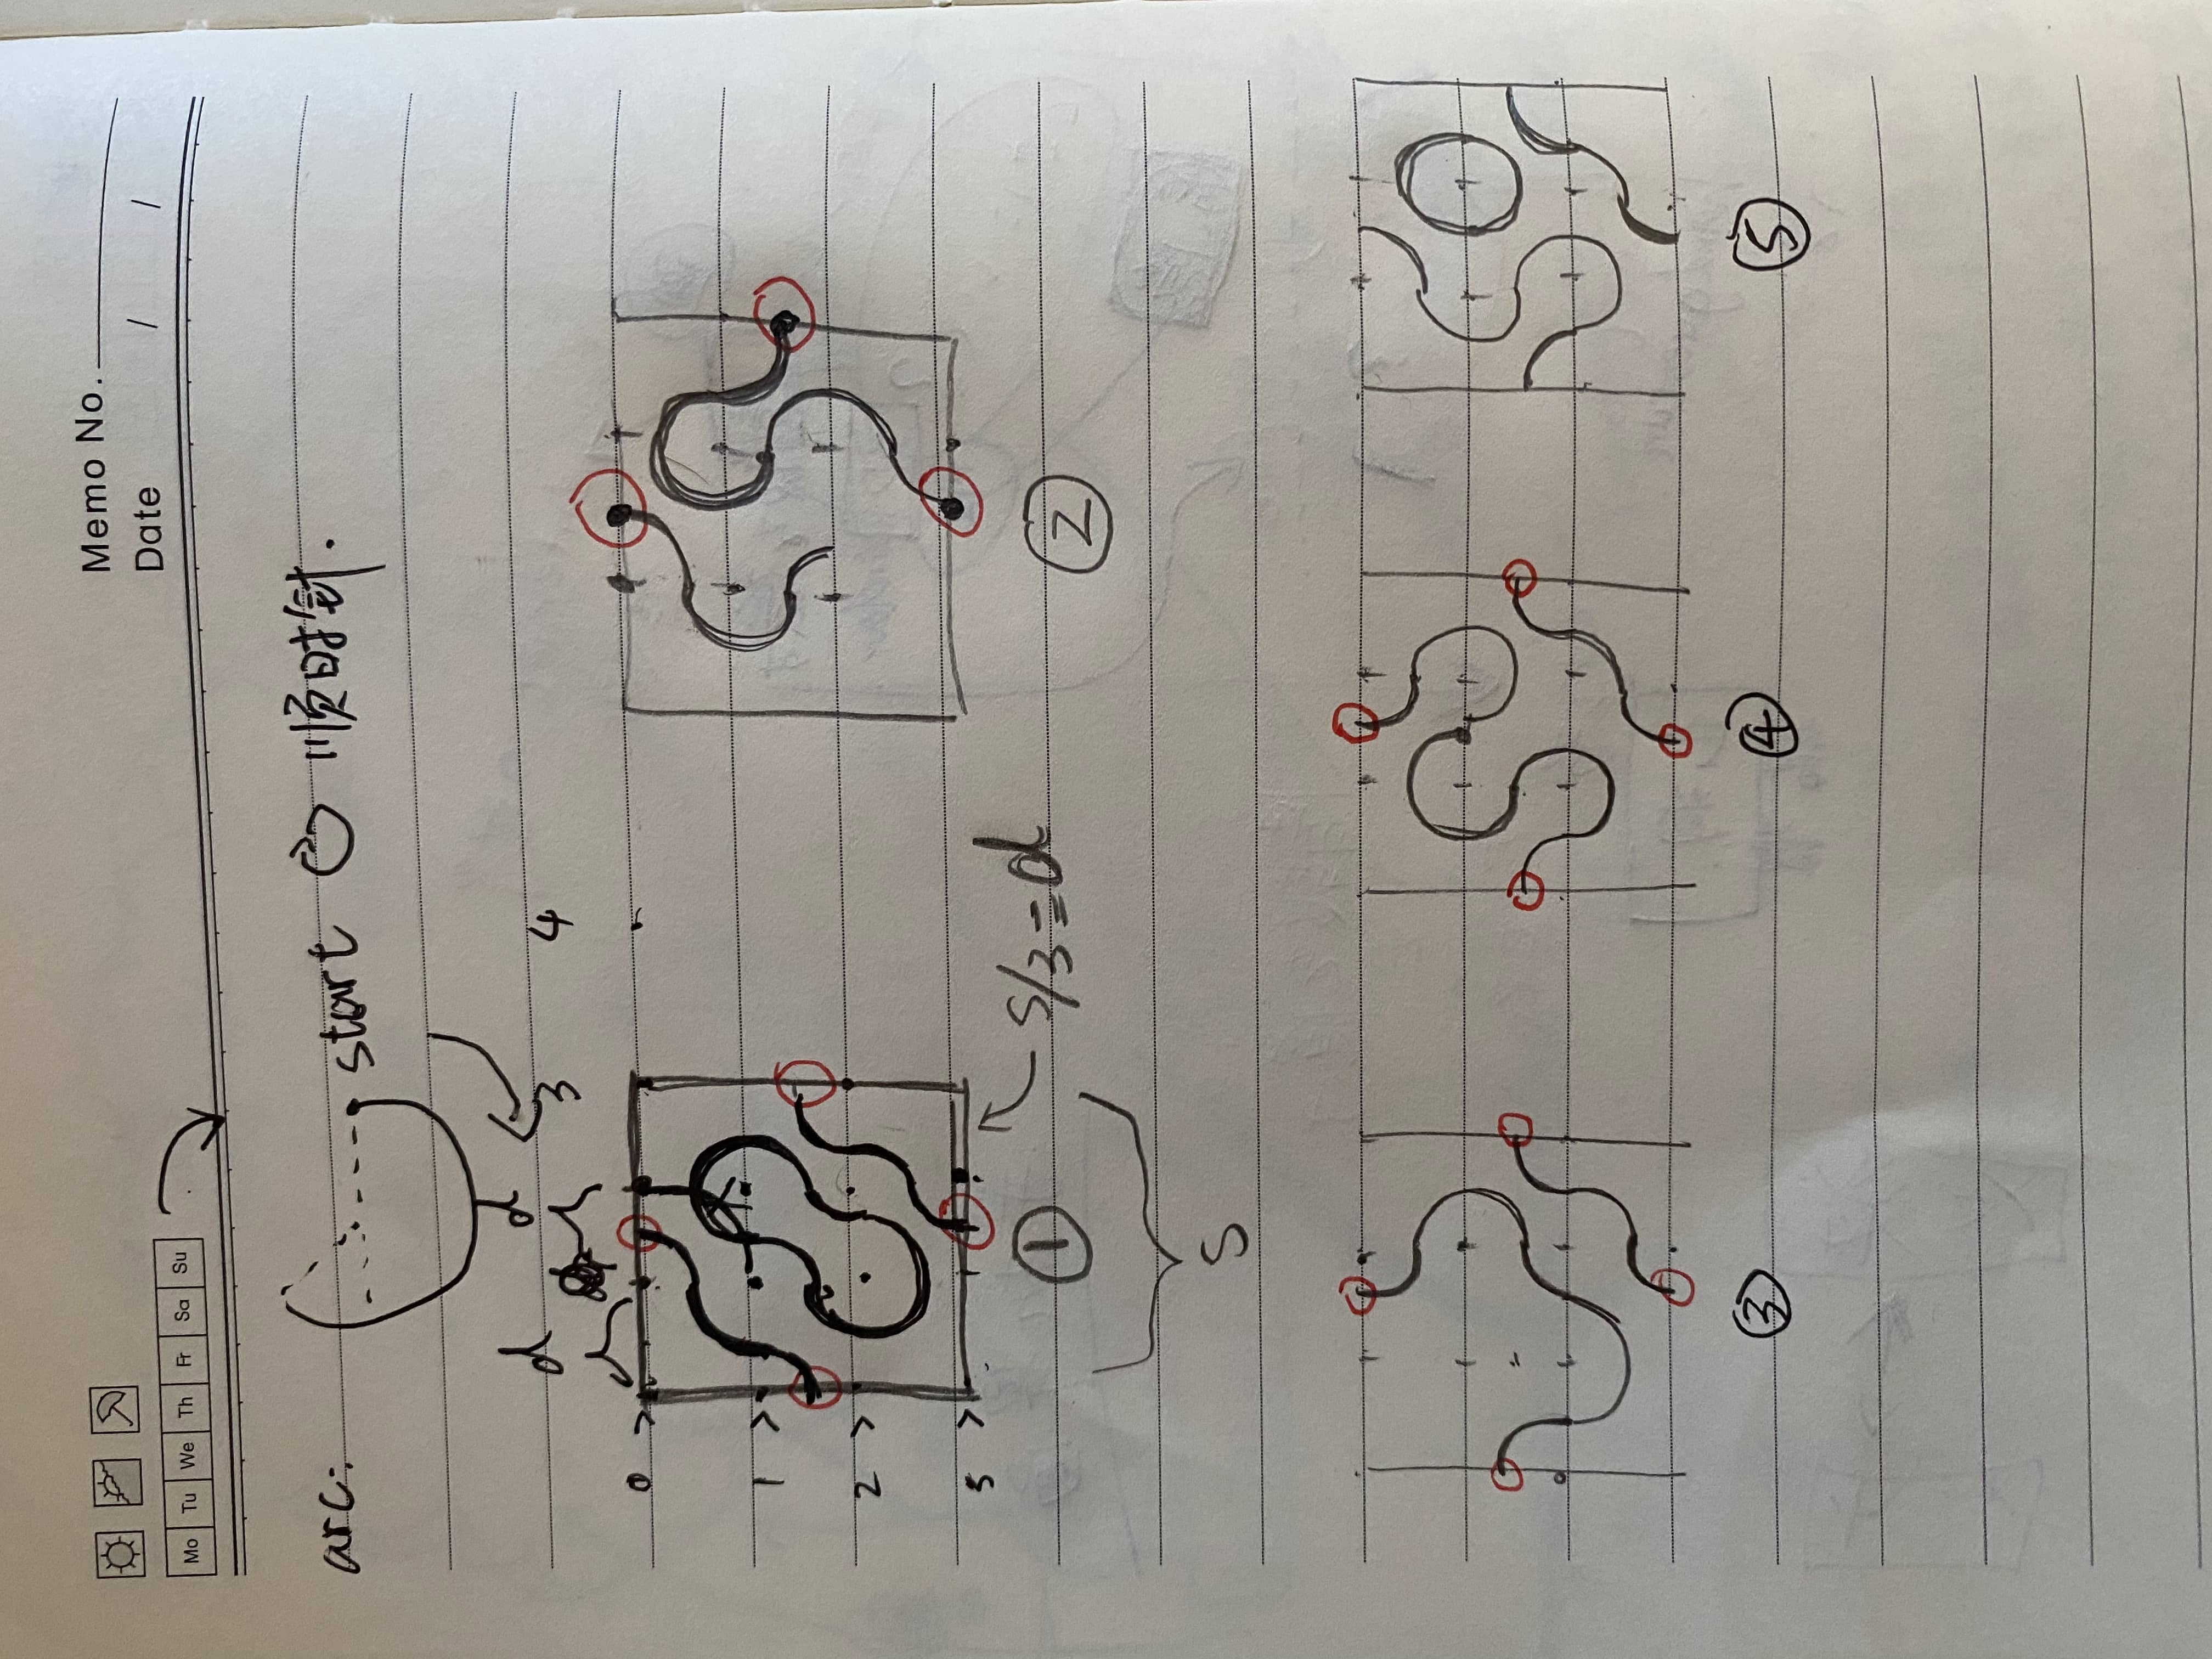 Memo No.
Date / /
Mo Tu We Th Fr Sa Su
arc: start 顺时针.
d d
3 4
0 >
1 >
2 >
3 >
S/3=d
① ②
S
③ ④ ⑤